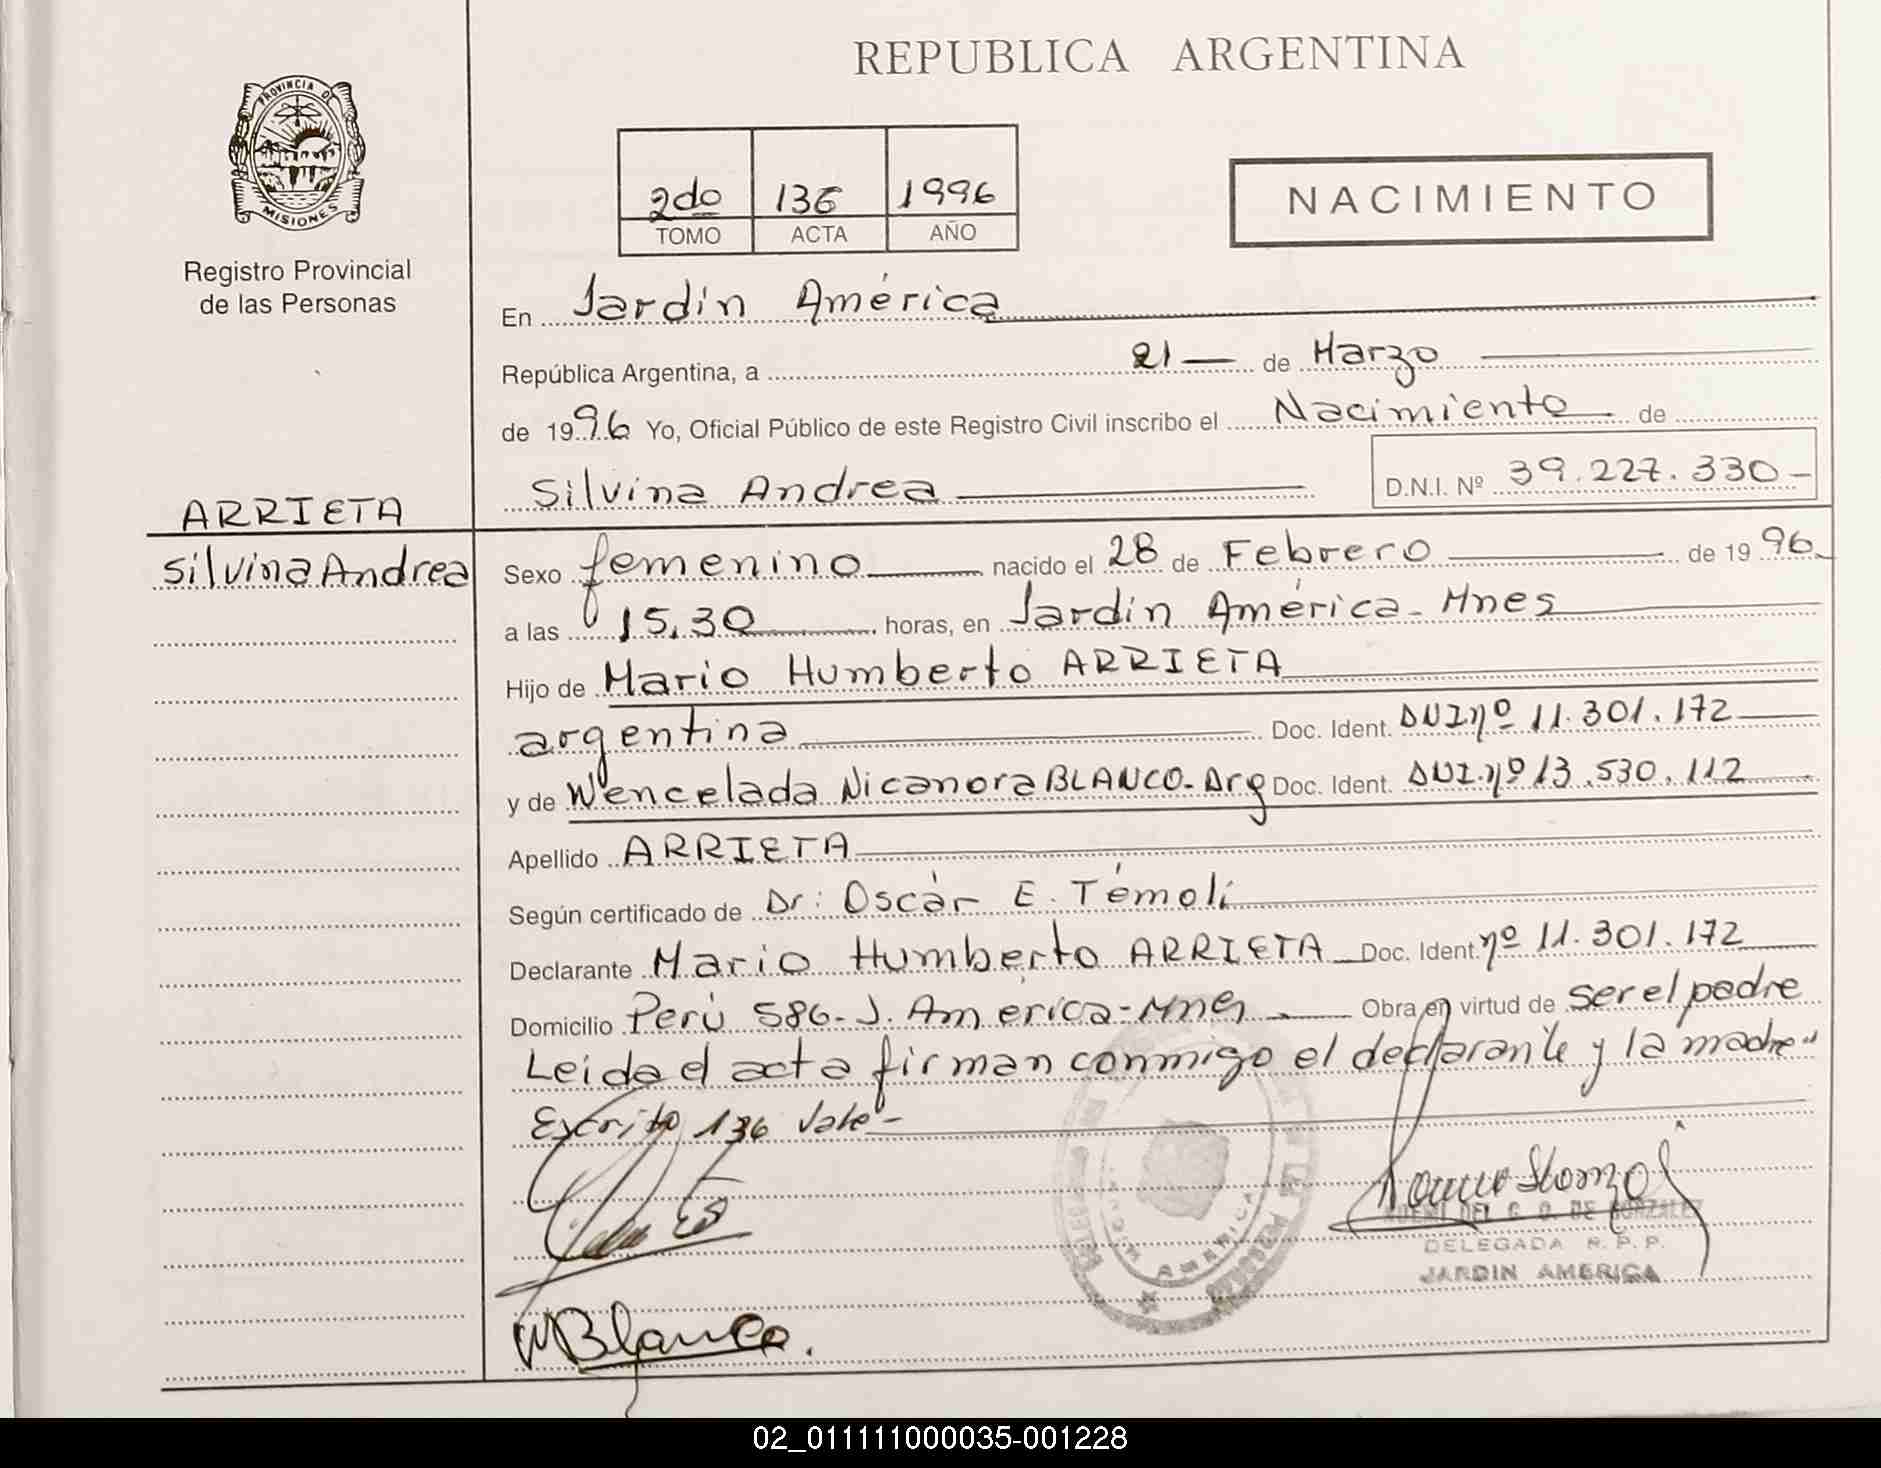 REPUBLICA ARGENTINA
PROVINCIA DE
MISIONES
Registro Provincial
de las Personas
2do 136 1996
TOMO ACTA AÑO
NACIMIENTO
En Jardín América
República Argentina, a 21 de Marzo
de 1996 Yo, Oficial Público de este Registro Civil inscribo el Nacimiento de
Silvina Andrea D.N.I. Nº 39.227.330-
ARRIETA
Silvina Andrea
Sexo femenino nacido el 28 de Febrero de 1996
a las 15,30 horas, en Jardín América - Mnes
Hijo de Mario Humberto ARRIETA
argentina Doc. Ident. DNI nº 11.301.172
y de Wencelada Nicanora BLANCO - Arg Doc. Ident. DNI. nº 13.530.112
Apellido ARRIETA
Según certificado de Dr: Oscar E. Témoli
Declarante Mario Humberto ARRIETA Doc. Ident. nº 11.301.172
Domicilio Perú 586 - J. América - Mnes Obra en virtud de ser el padre
Leida el acta firman conmigo el declarante y la madre"
Escrito 136 Vale -
DE GONZALEZ
DELEGADA R.P.P.
JARDIN AMERICA
AMERICA
WBlanco.
02_011111000035-001228